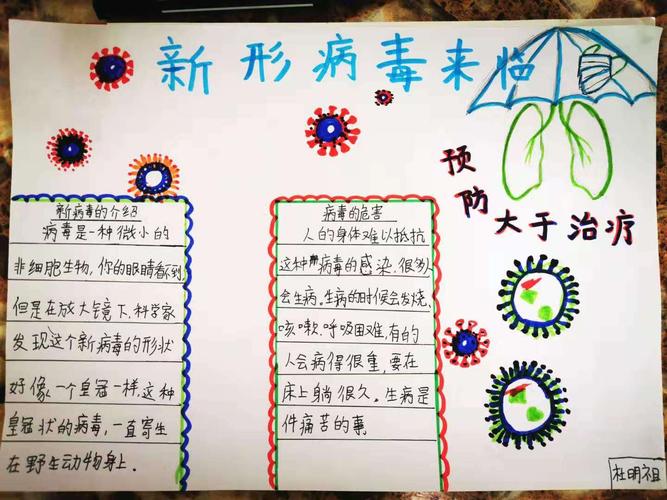 新形病毒来临
预防
大于治疗
新病毒的介绍
病毒是一种微小的
非细胞生物，你的眼睛看不到，
但是在放大镜下，科学家
发现这个新病毒的形状
好像一个皇冠一样，这种
皇冠状的病毒，一直寄生
在野生动物身上．
病毒的危害
人的身体难以抵抗
这种病毒的感染．很多人
会生病，生病的时候会发烧、
咳嗽、呼吸困难，有的
人会病得很重，要在
床上躺很久。生病是
件痛苦的事．
杜明祖